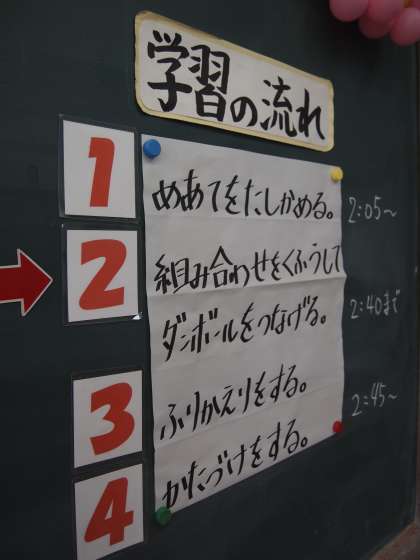 学習の流れ
1 めあてをたしかめる。 2:05～
2 組み合わせをくふうして
ダンボールをつなげる。 2:40まで
3 ふりかえりをする。 2:45～
4 かたづけをする。